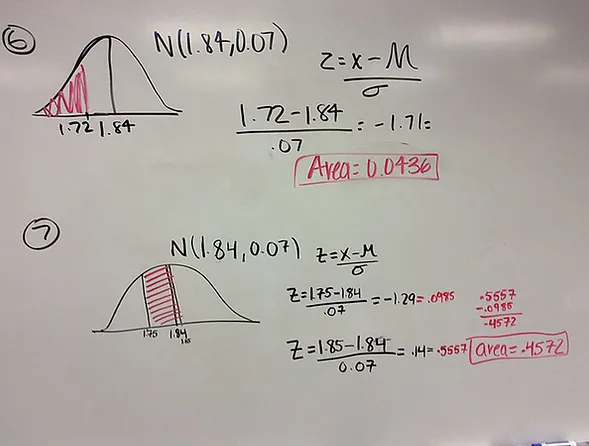 6
N(1.84,0.07)
z=x-M
σ
1.72 1.84
1.72-1.84 = -1.71=
.07
Area=0.0436
7
N(1.84,0.07)
z=x-M
σ
z=1.75-1.84 = -1.29=.0985
.07
.5557
-.0985
.4572
1.75 1.84
1.85
z=1.85-1.84 = .14=.5557
0.07
area=.4572